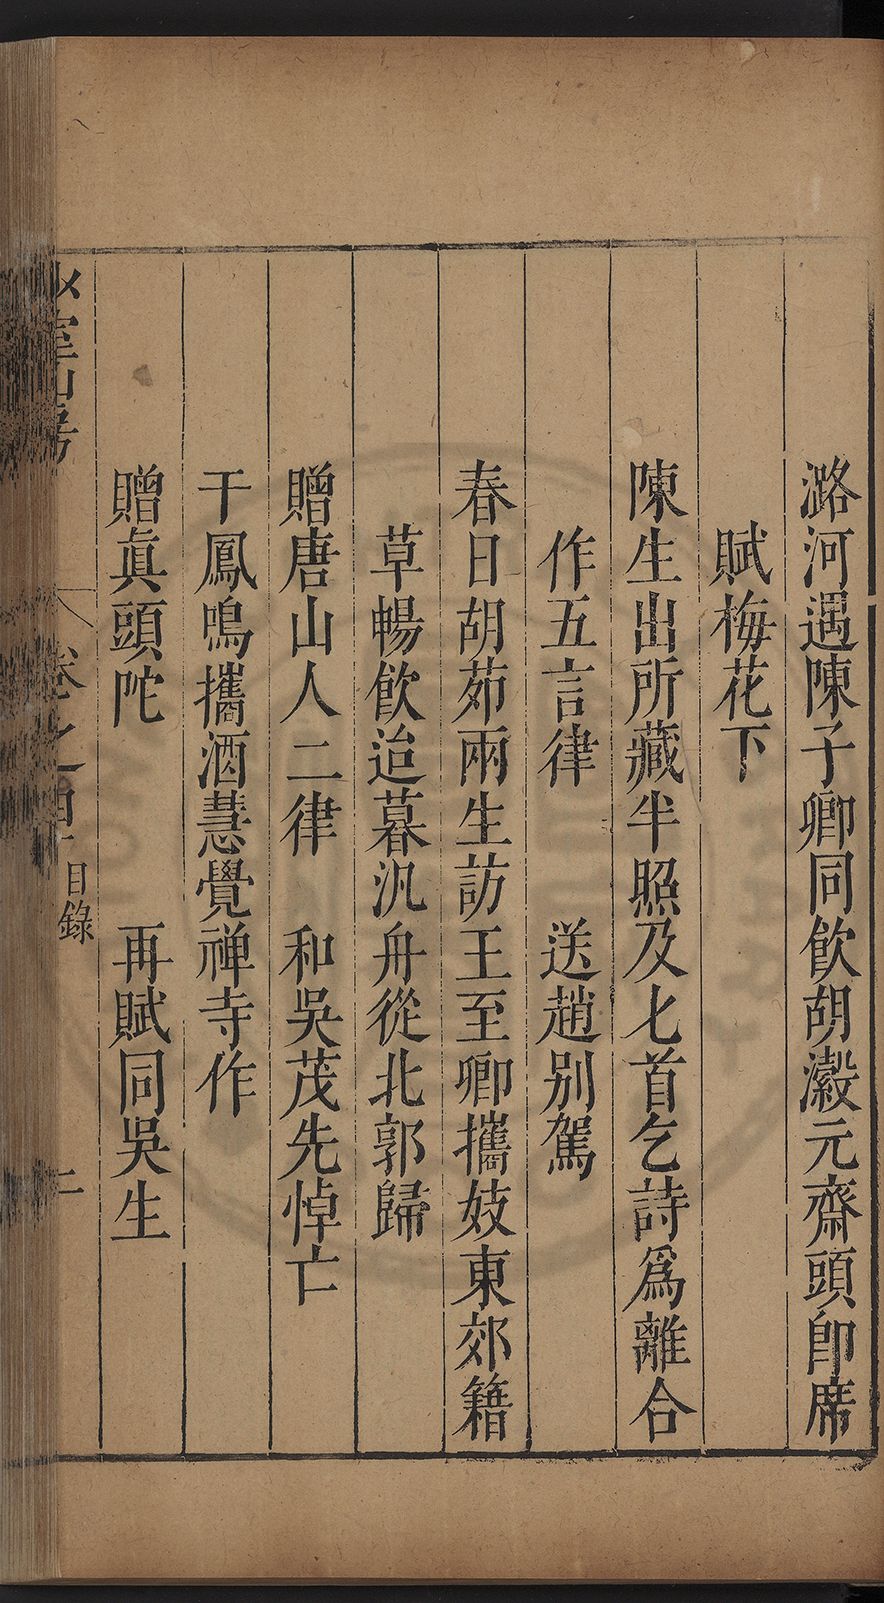 潞河遇陳子卿同飲胡瀫元齋頭卽席
賦梅花下
陳生出所藏半照及七首乞詩爲離合
作五言律　送趙別駕
春日胡茆兩生訪王至卿攜妓東郊籍
草暢飲迨暮汎舟從北郭歸
贈唐山人二律　和吳茂先悼亡
干鳳鳴攜酒慧覺禅寺作
贈眞頭陀　再賦同吳生
室山房　卷之　目錄　二